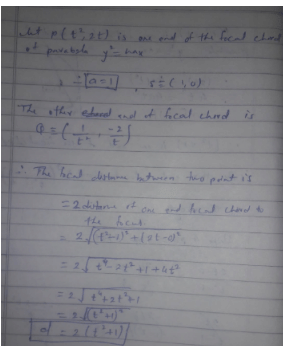 Let p(t², 2t) is one end of the focal chord
of parabola y² = 4ax
∴ a=1 , s = (1, 0)
The other end of focal chord is
Q = (1/t², -2/t)
∴ The focal distance between two point is
= 2 distance of one end focal chord to
the focus
= 2√(t²-1)² + (2t-0)²
= 2√t⁴-2t²+1+4t²
= 2√t⁴+2t²+1
= 2√(t²+1)²
d = 2(t²+1)